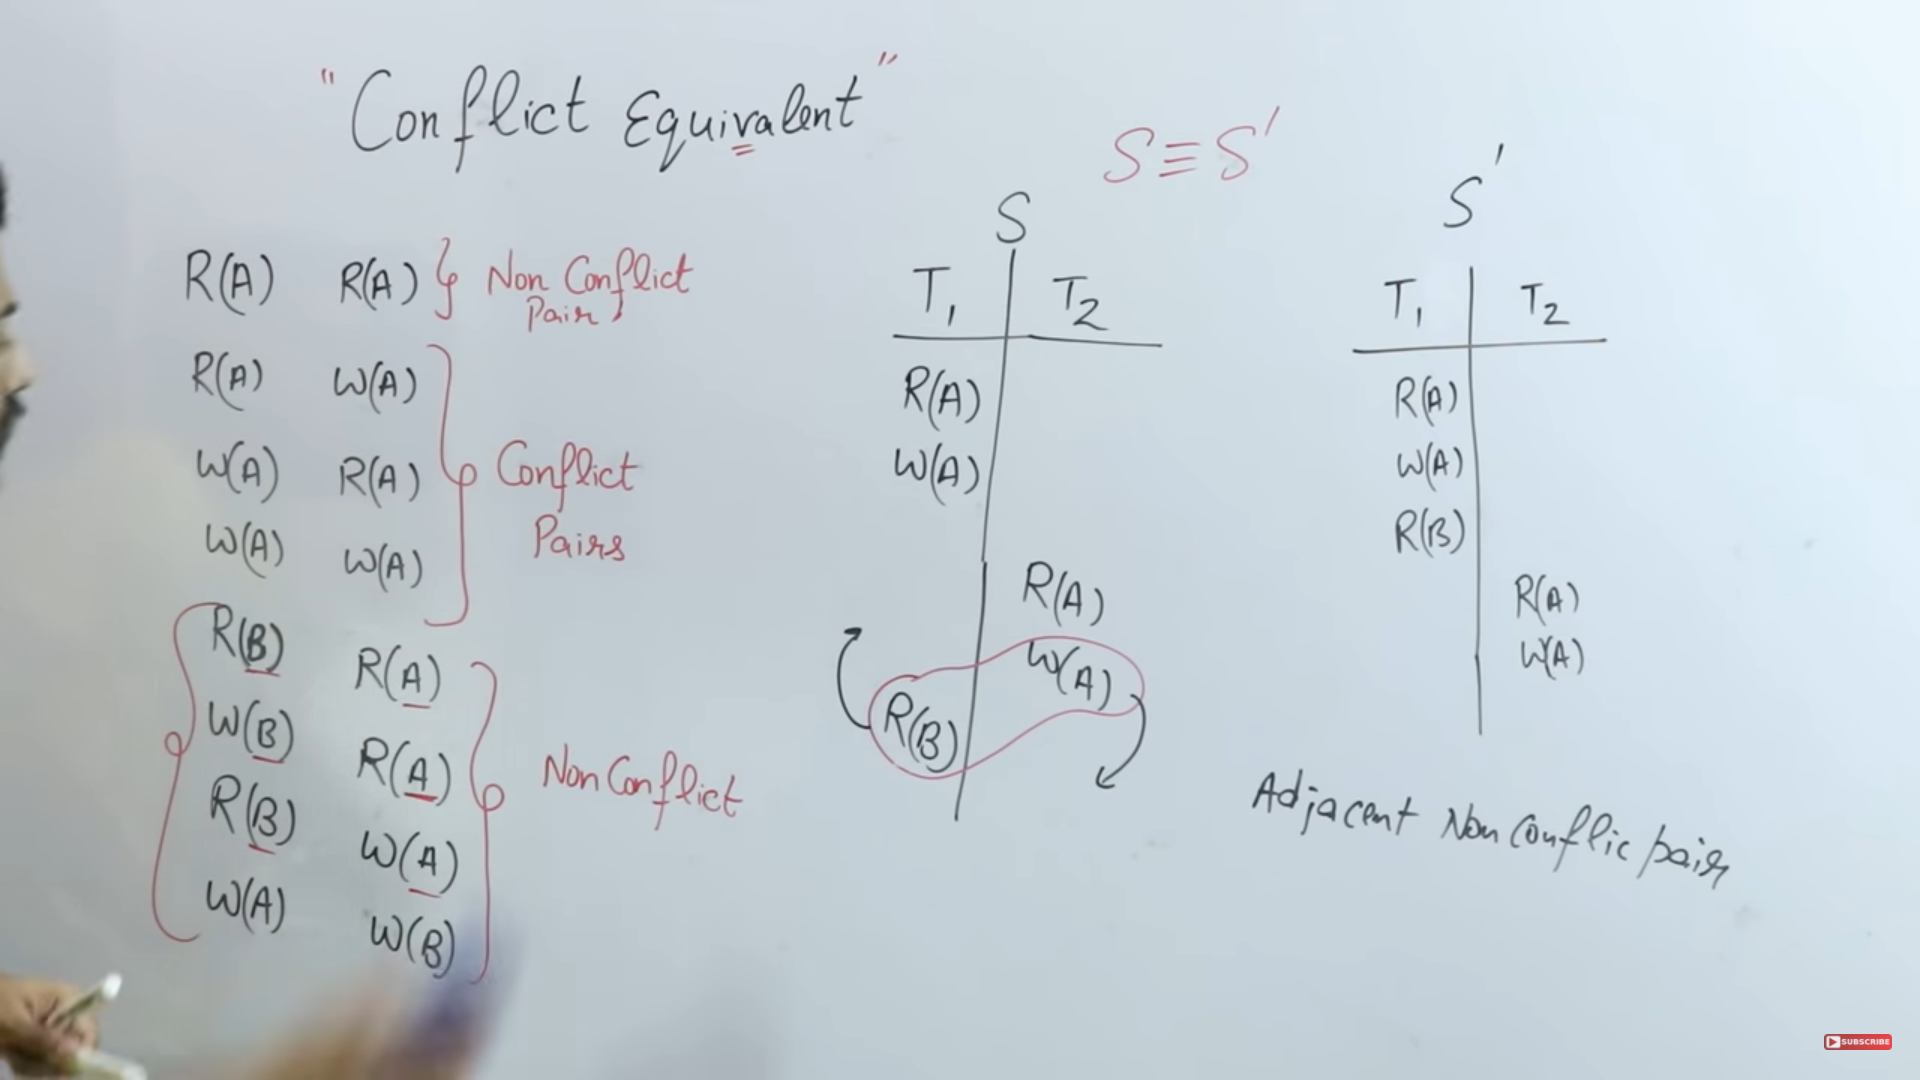 "Conflict Equivalent"
S≡S'
R(A) R(A) Non Conflict
Pair
R(A) W(A)
W(A) R(A)
W(A) W(A)
Conflict
Pairs
R(B) R(A)
W(B) R(A)
R(B) W(A)
W(A) W(B)
Non Conflict
S
T1 T2
R(A)
W(A)
R(A)
W(A)
R(B)
S'
T1 T2
R(A)
W(A)
R(B)
R(A)
W(A)
Adjacent Non Conflic pair
SUBSCRIBE